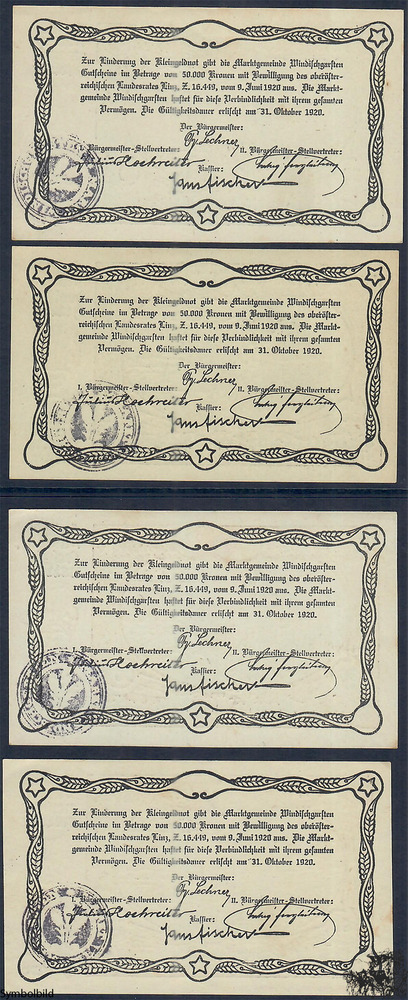 Zur Linderung der Kleingeldnot gibt die Marktgemeinde Windischgarsten
Gutscheine im Betrage von 50.000 Kronen mit Bewilligung des oberöster-
reichischen Landesrates Linz, Z. 16.449, vom 9. Juni 1920 aus. Die Markt-
gemeinde Windischgarsten haftet für diese Verbindlichkeit mit ihrem gesamten
Vermögen. Die Gültigkeitsdauer erlischt am 31. Oktober 1920.
Der Bürgermeister:
Lechner
Bürgermeister-Stellvertreter: II. Bürgermeister-Stellvertreter:
Julius Hochreiter
Kassier:
Hans Fischer
Zur Linderung der Kleingeldnot gibt die Marktgemeinde Windischgarsten
Gutscheine im Betrage von 50.000 Kronen mit Bewilligung des oberöster-
reichischen Landesrates Linz, Z. 16.449, vom 9. Juni 1920 aus. Die Markt-
gemeinde Windischgarsten haftet für diese Verbindlichkeit mit ihrem gesamten
Vermögen. Die Gültigkeitsdauer erlischt am 31. Oktober 1920.
Der Bürgermeister:
Lechner
I. Bürgermeister-Stellvertreter: II. Bürgermeister-Stellvertreter:
Julius Hochreiter
Kassier:
Hans Fischer
Zur Linderung der Kleingeldnot gibt die Marktgemeinde Windischgarsten
Gutscheine im Betrage von 50.000 Kronen mit Bewilligung des oberöster-
reichischen Landesrates Linz, Z. 16.449, vom 9. Juni 1920 aus. Die Markt-
gemeinde Windischgarsten haftet für diese Verbindlichkeit mit ihrem gesamten
Vermögen. Die Gültigkeitsdauer erlischt am 31. Oktober 1920.
Der Bürgermeister:
Lechner
Bürgermeister-Stellvertreter: II. Bürgermeister-Stellvertreter:
Julius Hochreiter
Kassier:
Hans Fischer
Zur Linderung der Kleingeldnot gibt die Marktgemeinde Windischgarsten
Gutscheine im Betrage von 50.000 Kronen mit Bewilligung des oberöster-
reichischen Landesrates Linz, Z. 16.449, vom 9. Juni 1920 aus. Die Markt-
gemeinde Windischgarsten haftet für diese Verbindlichkeit mit ihrem gesamten
Vermögen. Die Gültigkeitsdauer erlischt am 31. Oktober 1920.
Der Bürgermeister:
Lechner
I. Bürgermeister-Stellvertreter: II. Bürgermeister-Stellvertreter:
Julius Hochreiter
Kassier:
Hans Fischer
Symbolbild